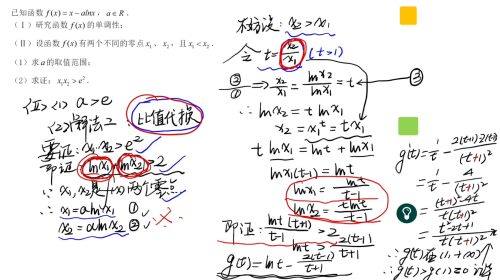 已知函数 f(x) = x − alnx，a∈R．
（Ⅰ）研究函数 f(x) 的单调性；
（Ⅱ）设函数 f(x) 有两个不同的零点 x₁、x₂，且 x₁ < x₂．
（1）求 a 的取值范围；
（2）求证：x₁x₂ > e²．
(1) a > e
(2) 解法二 比值代换
要证: x₁x₂ > e²
即证 lnx₁ + lnx₂ > 2
∵ x₁, x₂是f(x)两个零点
∴ x₁ = a lnx₁ ①
x₂ = a lnx₂ ②
不妨设: x₂ > x₁
令 t = x₂/x₁ (t>1)
②/① ⟹ x₂/x₁ = lnx₂/lnx₁ = t ③
∴ lnx₂ = t lnx₁
x₂ = x₁ᵗ = tx₁
t lnx₁ = lnt + lnx₁
lnx₁(t−1) = lnt
lnx₁ = lnt/(t−1)
lnx₂ = tlnt/(t−1)
即证: lnt(t+1)/(t−1) > 2
lnt > 2(t−1)/(t+1)
g(t) = lnt − 2(t−1)/(t+1)
= 1/t − 4/(t+1)²
= ((t+1)²−4t)/(t(t+1)²)
= (t²−2t+1)/(t(t+1)²)
∴ g(t)在(1,+∞)↗
∴ g(t) > g(1) = 0